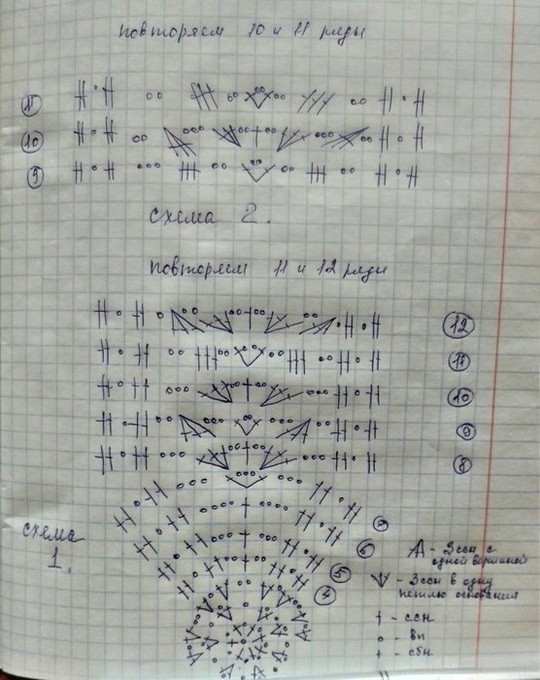 повторяем 10 и 11 ряды
11
10
9
схема 2.
повторяем 11 и 12 ряды
12
11
10
9
8
7
6
5
4
схема
1.
- 3 ссн с
одной вершиной
- 3 ссн в одну
петлю основания
- ссн
- вп
- сбн